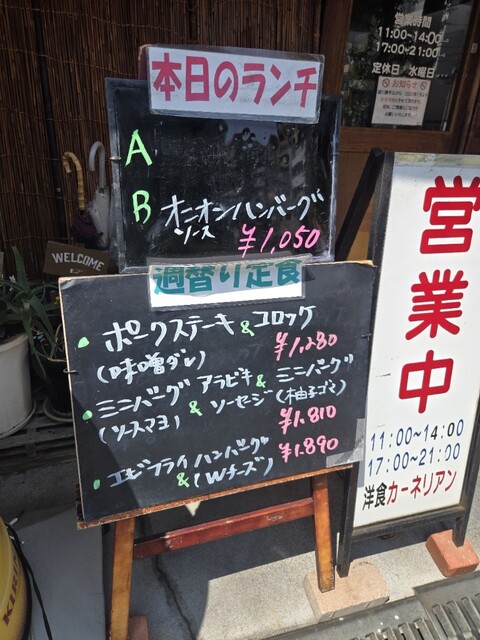 営業時間
11:00~14:00
17:00~21:00
定休日 水曜日
お知らせ
本日のランチ
A
B オニオンハンバーグ
ソース
¥1,050
WELCOME
週替り定食
・ポークステーキ & コロッケ
(味噌ダレ) ¥1,280
・ミニバーグ アラビキ & ミニバーグ
(ソースマヨ) & ソーセージ (柚子ゴマ)
¥1,810
・エビフライ ハンバーグ ¥1,890
& (Wチーズ)
営業中
11:00~14:00
17:00~21:00
洋食カーネリアン
KIRIN